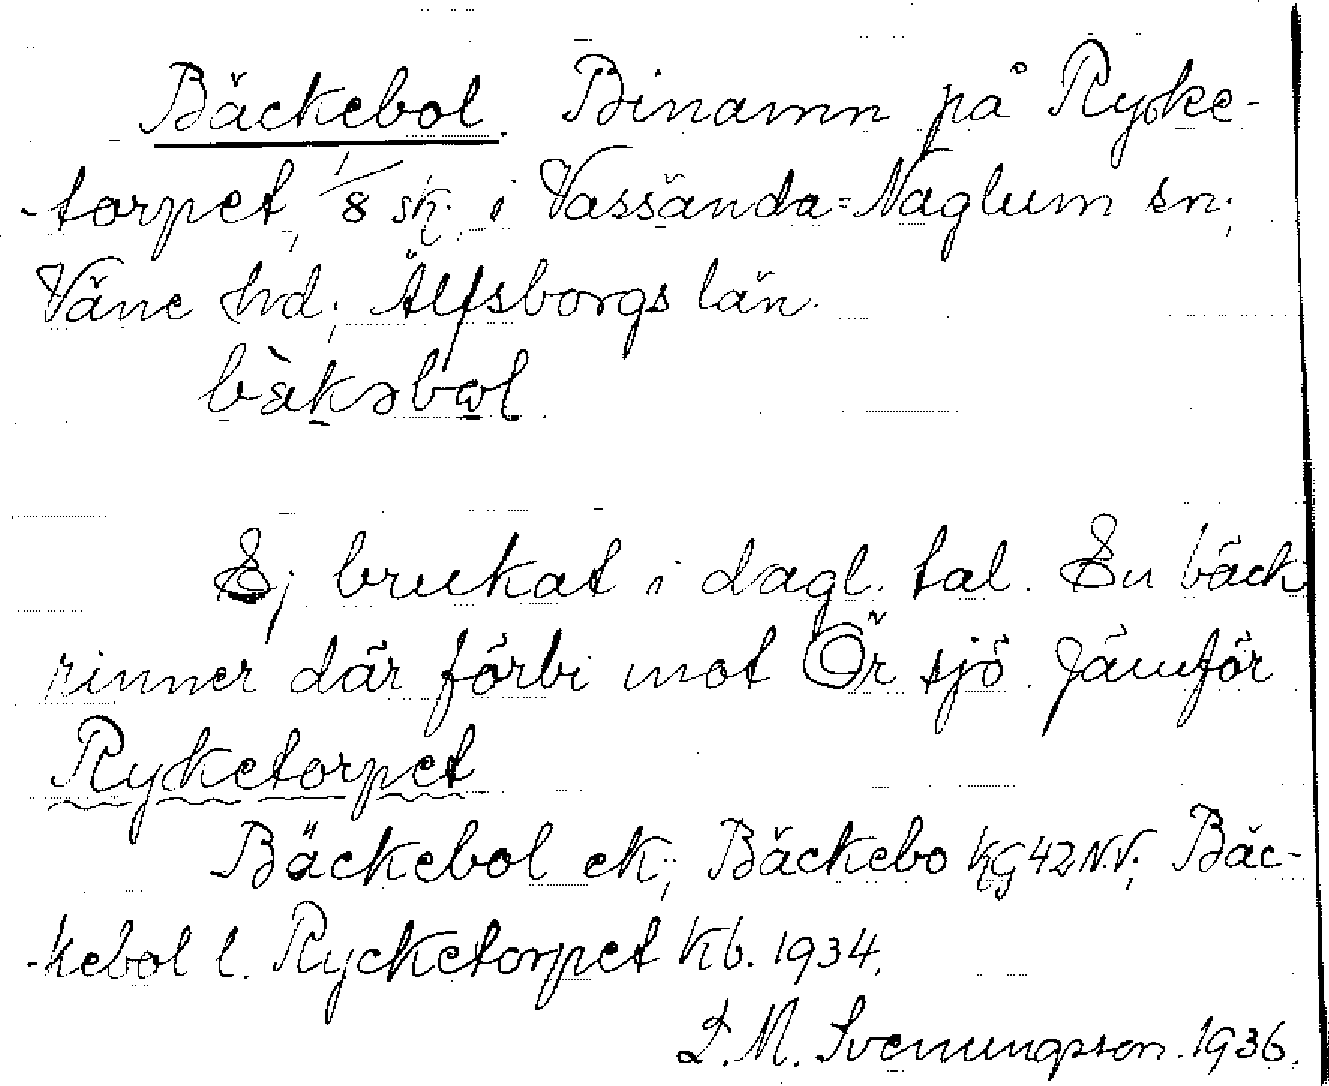 Bäckebol. Binamn på Ryke-
-torpet, 1/8 sk. i Vassända-Naglum sn;
Väne hd; Älfsborgs län.
bὰkəbωl.
Ej brukat i dagl. tal. En bäck
rinner där förbi mot Ör sjö. Jämför
Ryketorpet
Bäckebol ek; Bäckebo KG 42 N.V; Bäc-
-kebol l. Rycketorpet Kb. 1934.
D. M. Svenungsson. 1936.